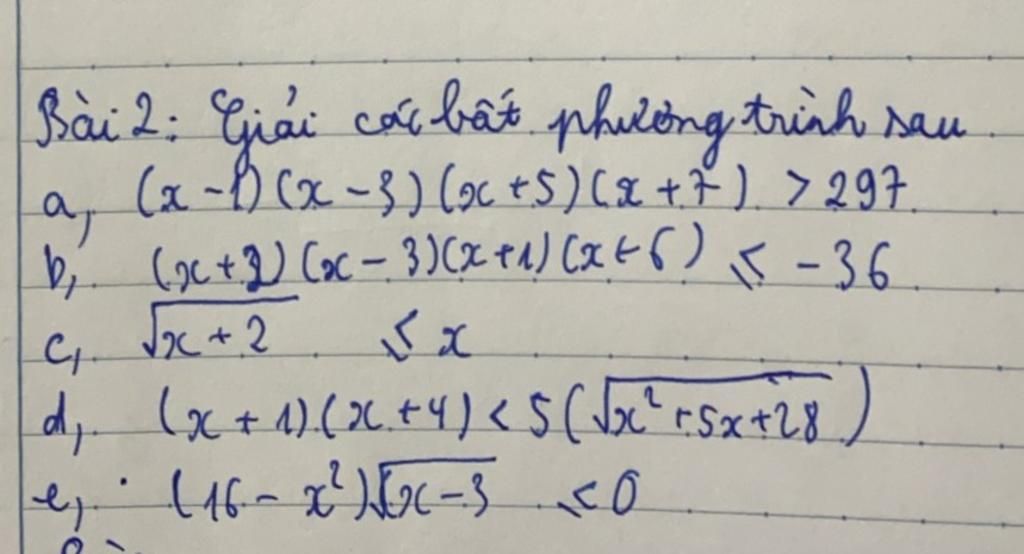 Bài 2: Giải các bất phương trình sau
a, (x - 1)(x - 3)(x + 5)(x + 7) > 297
b, (x + 2)(x - 3)(x + 1)(x + 6) ≤ -36
c, √(x + 2) ≤ x
d, (x + 1)(x + 4) < 5(√(x² + 5x + 28))
e, (16 - x²)√(x - 3) ≤ 0